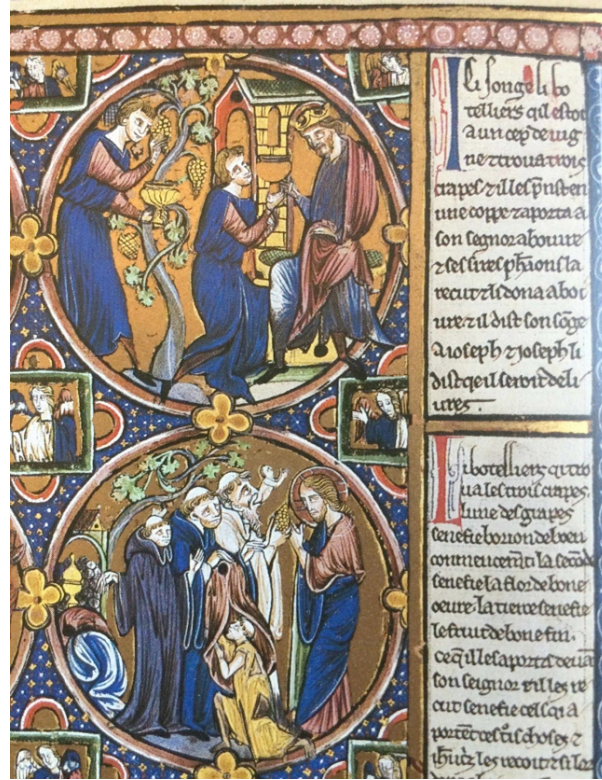 Ici songe li bo
telliers qil estoit
a un cep de vig
ne ⁊ trouva trois
crapes ⁊ il les prist en
une coppe ⁊ aporta a
son segnor a boiure
⁊ ses sires pharions la
recut ⁊ li dona a boi
ure ⁊ il dist son songe
a ioseph ⁊ ioseph li
dist qe il seroit deli
ures.
Li botelliers qi tro
ua les trois crapes
lune des grapes
senefie boton de boen
comencement la seconde
senefie la flor de bone
oeure. la tierce senefie
le fruit de bone fin.
ce qil les aporta deuant
son seignor ⁊ il les re
cut senefie cels qi a
portent ces choses ⁊
ihucrist les recoit ⁊ si lor